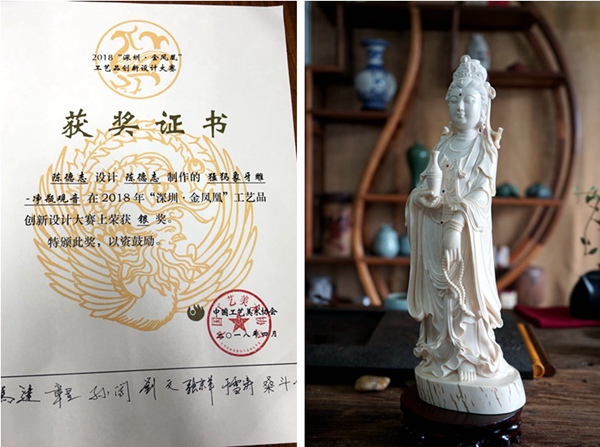 2018“深圳·金凤凰”
工艺品创新设计大赛
获奖证书
陈德志 设计 陈德志 制作的 猛犸象牙雕
-净瓶观音 在2018年“深圳·金凤凰”工艺品
创新设计大赛上荣获 银 奖。
特颁此奖，以资鼓励。
中国工艺美术协会
二〇一八年四月